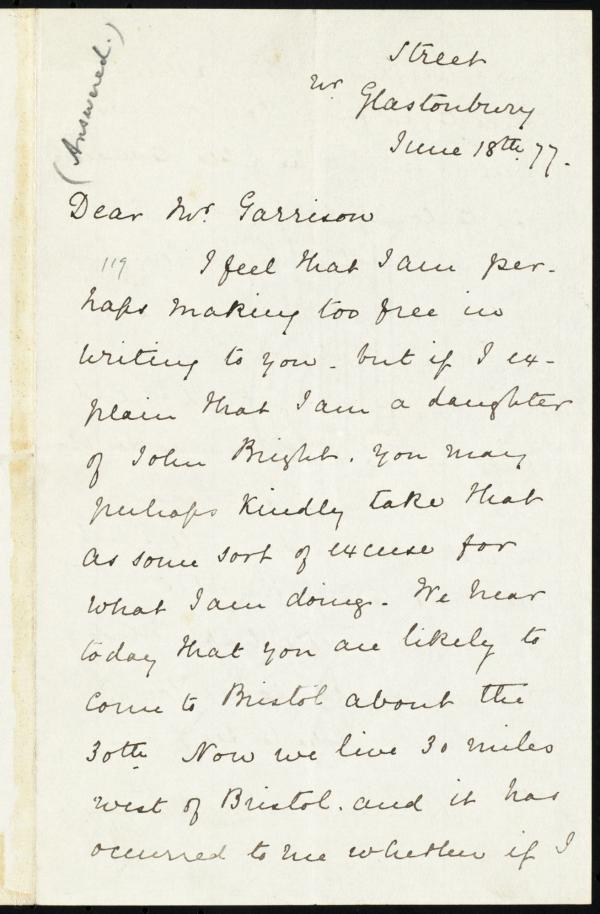 (Answered.)
Street
nr. Glastonbury
June 18th 77.
Dear Mr. Garrison
119
I feel that I am per-
haps making too free in
writing to you - but if I ex-
plain that I am a daughter
of John Bright. you may
perhaps kindly take that
as some sort of excuse for
what I am doing. We hear
today that you are likely to
come to Bristol about the
30th Now we live 30 miles
west of Bristol. and it has
occurred to me whether if I